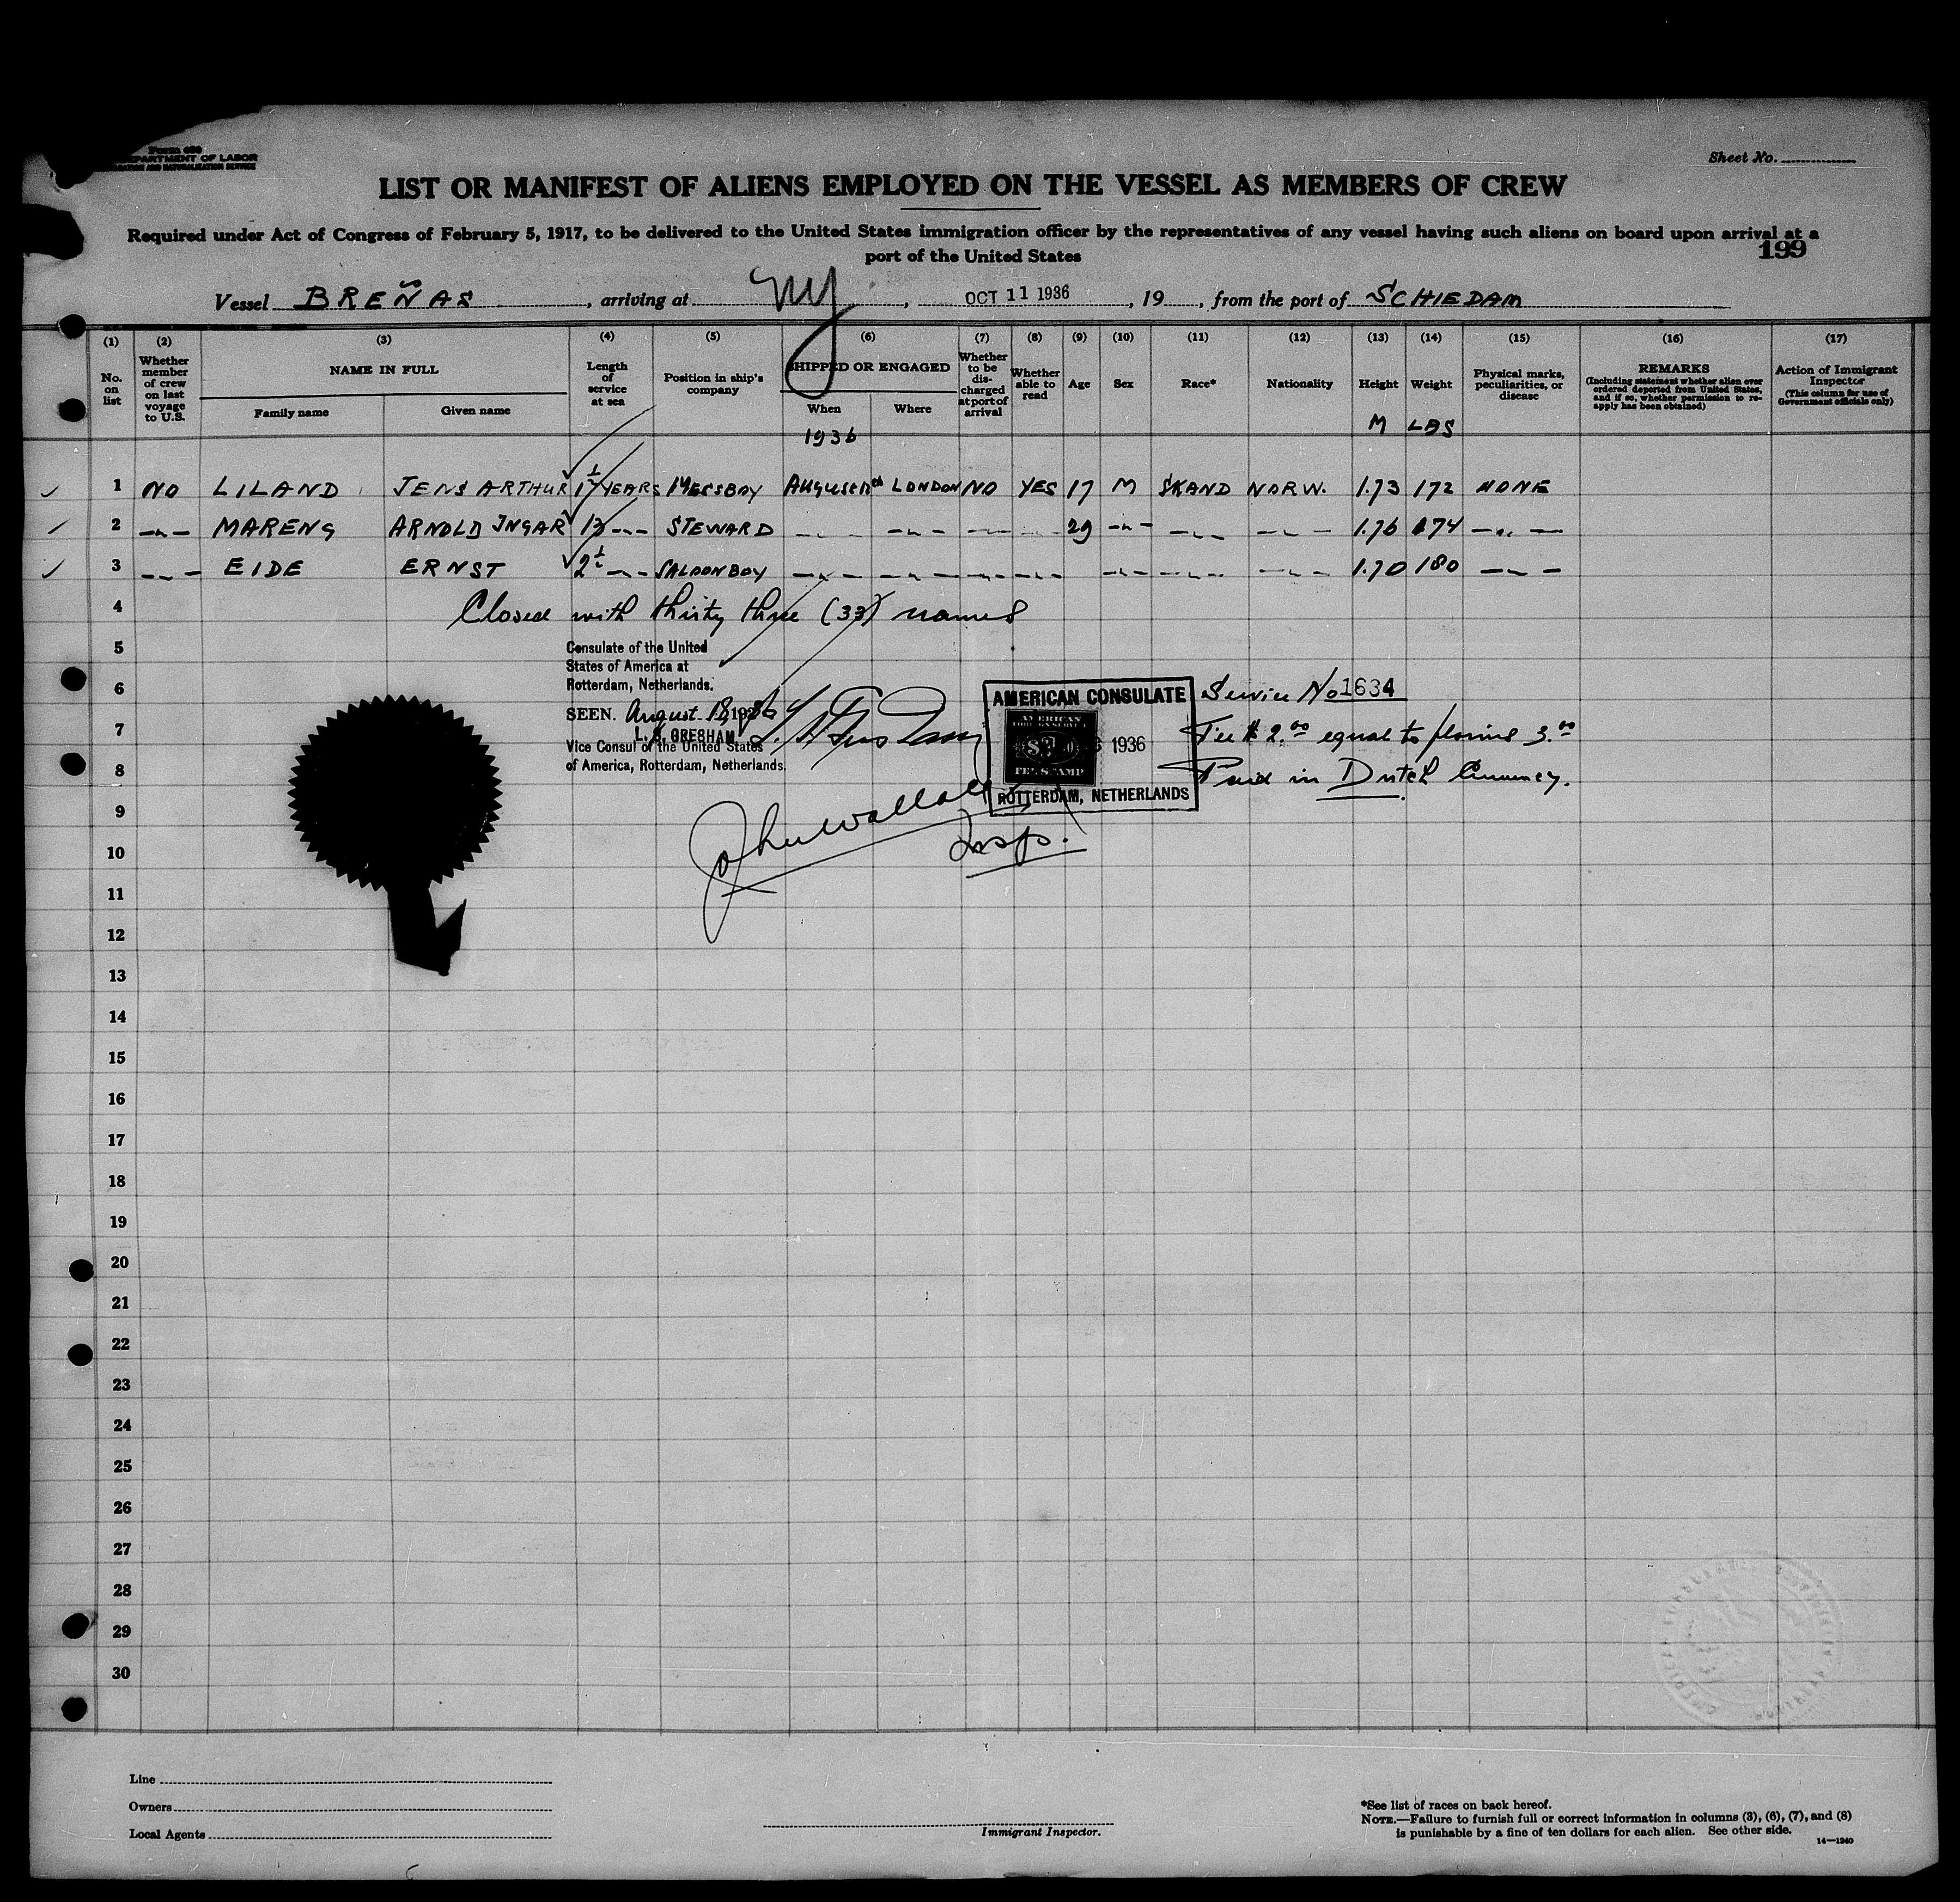 Form 680
DEPARTMENT OF LABOR
IMMIGRATION AND NATURALIZATION SERVICE
Sheet No.
LIST OR MANIFEST OF ALIENS EMPLOYED ON THE VESSEL AS MEMBERS OF CREW
Required under Act of Congress of February 5, 1917, to be delivered to the United States immigration officer by the representatives of any vessel having such aliens on board upon arrival at a
port of the United States
199
Vessel BREÑAS, arriving at NY, OCT 11 1936, 19, from the port of SCHIEDAM
(1) (2) (3) (4) (5) (6) (7) (8) (9) (10) (11) (12) (13) (14) (15) (16) (17)
No. on list
Whether member of crew on last voyage to U.S.
NAME IN FULL
Family name
Given name
Length of service at sea
Position in ship's company
SHIPPED OR ENGAGED
When
Where
Whether to be discharged at port of arrival
Whether able to read
Age
Sex
Race*
Nationality
Height
Weight
Physical marks, peculiarities, or disease
REMARKS
(Including statement whether alien ever ordered deported from United States, and if so, whether permission to reapply has been obtained)
Action of Immigrant Inspector
(This column for use of Government officials only)
1936 M LBS
1 NO LILAND JENS ARTHUR YEARS MESSBOY August LONDON NO YES 17 M SKAND NORW. 1.73 172 NONE
2 -"- MARENG ARNOLD INGAR 13 -"- STEWARD -"- -"- -"- -"- 29 -"- -"- -"- 1.76 174 -"-
3 -"- EIDE ERNST 2½ -"- SALOONBOY -"- -"- -"- -"- -"- -"- -"- 1.70 180 -"-
4 Closed with thirty three (33) names
5
Consulate of the United
States of America at
Rotterdam, Netherlands.
6
SEEN. August 18, 1936
7
L. S. GRESHAM
Vice Consul of the United States
of America, Rotterdam, Netherlands.
AMERICAN CONSULATE
AMERICAN
FOREIGN SERVICE
$2.00
FEE STAMP
1936
ROTTERDAM, NETHERLANDS
Service No 1634
Fee $ 2.00 equal to florins 3.00
Paid in Dutch Currency.
8
9
John Wallace
Insp.
10
11
12
13
14
15
16
17
18
19
20
21
22
23
24
25
26
27
28
29
30
Line
Owners
Local Agents
Immigrant Inspector.
*See list of races on back hereof.
NOTE.—Failure to furnish full or correct information in columns (3), (6), (7), and (8)
is punishable by a fine of ten dollars for each alien. See other side.
14—1240